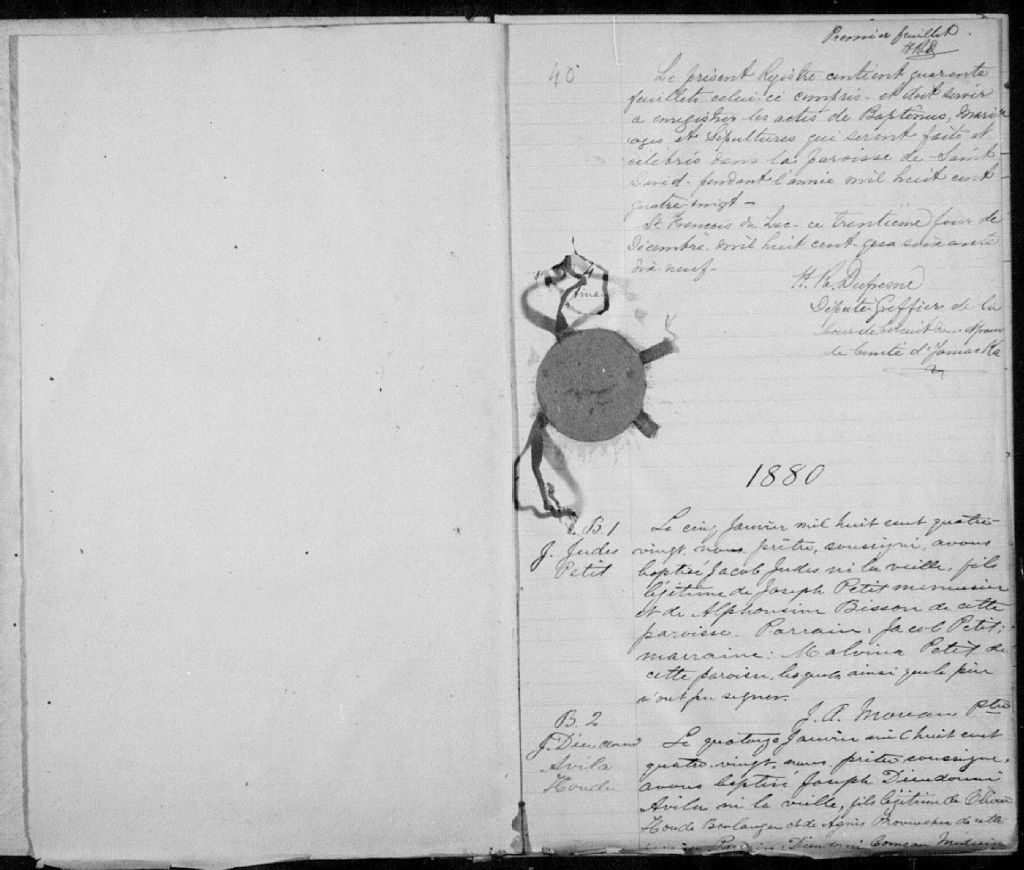 Premier feuillet.
40
Le présent Registre contient quarante
feuillets celui-ci compris et doit servir
a enregistrer les actes de Baptêmes, Mari-
ages et Sépultures qui seront faits et
célébrés dans la Paroisse de Saint
David pendant l'année mil huit cent
quatre-vingt -
St François du Lac - ce trentième jour de
Décembre mil huit cent soixante
dix neuf -
Dufresne
Député Greffier de la
Cour de circuit dans et pour
le Comté d'Yamaska
1880
B. 1
J. Judes
Petit
Le cinq Janvier mil huit cent quatre-
vingt, nous prêtre, soussigné, avons
baptisé Jacob Judes né la veille, fils
légitime de Joseph Petit menuisier
et de Alphonsine Bisson de cette
paroisse. Parrain: Jacob Petit;
marraine: Malvina Petit de
cette paroisse, lesquels ainsi que le père
n'ont pu signer.
J. A. Moreau Ptre
B. 2
J. Dieudonné
Avila
Houde
Le quatorze Janvier mil huit cent
quatre-vingt, nous, prêtre soussigné,
avons baptisé Joseph Dieudonné
Avila né la veille, fils légitime de Olivier
Houde Boulanger et de Agnès Provencher de cette
Parrain, Dieudonné Comeau Médecin